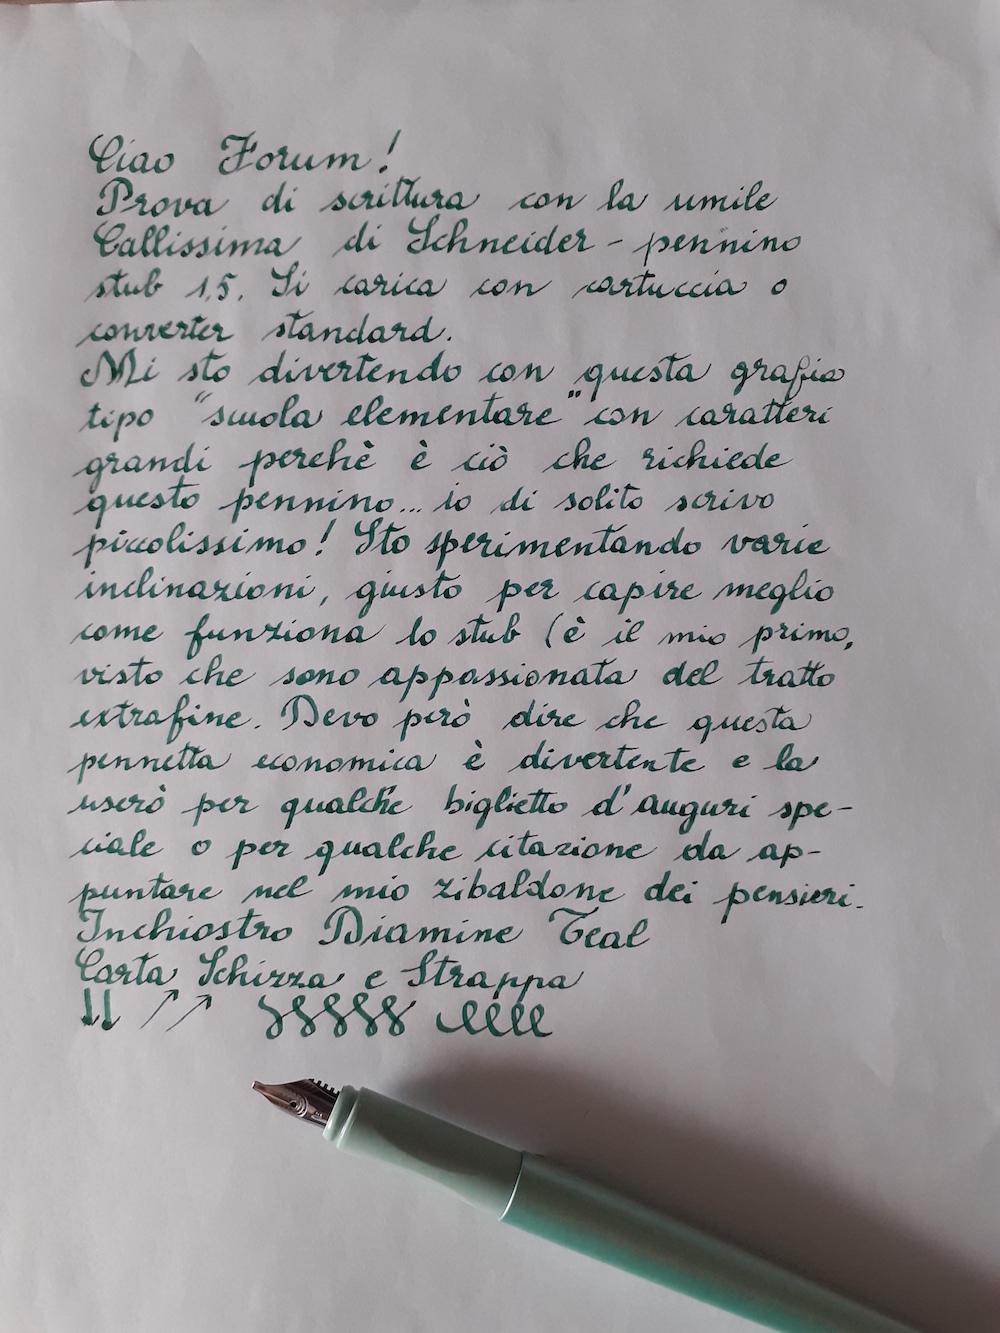 Ciao Forum!
Prova di scrittura con la umile
Callissima di Schneider - pennino
stub 1,5. Si carica con cartuccia o
converter standard.
Mi sto divertendo con questa grafia
tipo "scuola elementare" con caratteri
grandi perchè è ciò che richiede
questo pennino... io di solito scrivo
piccolissimo! Sto sperimentando varie
inclinazioni, giusto per capire meglio
come funziona lo stub (è il mio primo,
visto che sono appassionata del tratto
extrafine. Devo però dire che questa
pennetta economica è divertente e la
userò per qualche biglietto d'auguri spe-
ciale o per qualche citazione da ap-
puntare nel mio zibaldone dei pensieri.
Inchiostro Diamine Teal
Carta Schizza e Strappa